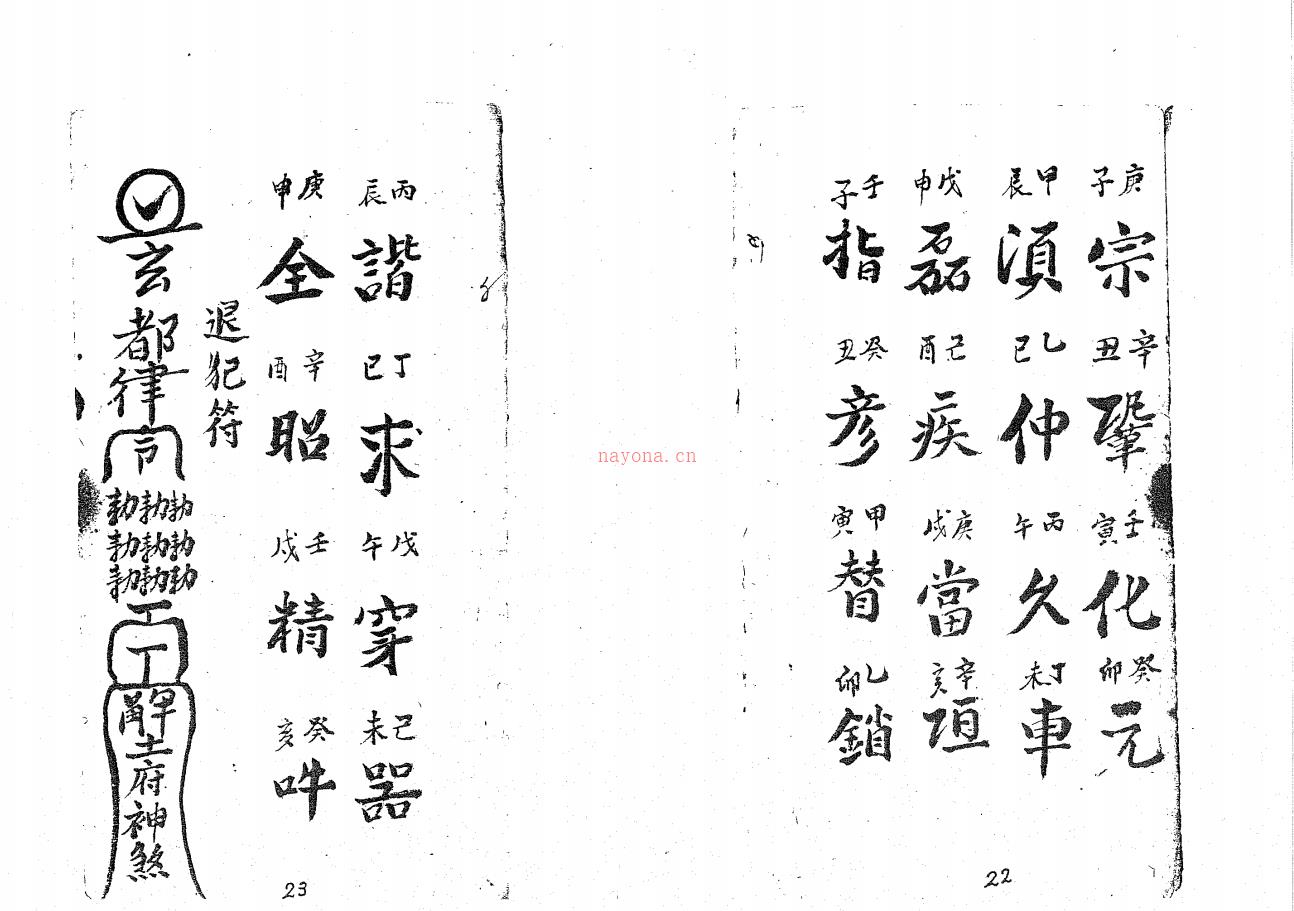 庚子 宗 辛丑 鞏 壬寅 化 癸卯 元
甲辰 湏 乙巳 仲 丙午 久 丁未 車
戊申 磊 己酉 疾 庚戌 當 辛亥 垣
壬子 指 癸丑 彥 甲寅 替 乙卯 鎖
22
丙辰 諧 丁巳 求 戊午 穿 己未 器
庚申 全 辛酉 昭 壬戌 精 癸亥 吽
退犯符
玄都律令
勅勅勅
勅勅勅
勅勅勅
解土府神煞
23
nayona.cn